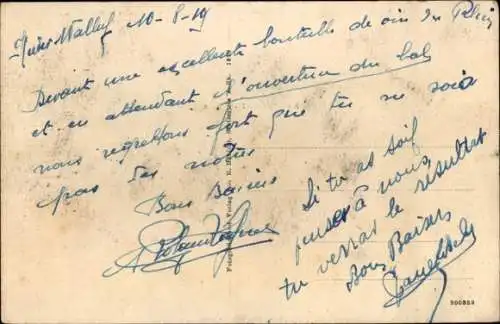 10-8-19
Devant une excellente bouteille de vin du Rhin
et en attendant l'ouverture du bal
nous regrettons fort que tu ne sois
pas des nôtres
Bons Baisers
Si tu as soif
penses à nous,
tu verras le résultat
Bons Baisers
300869